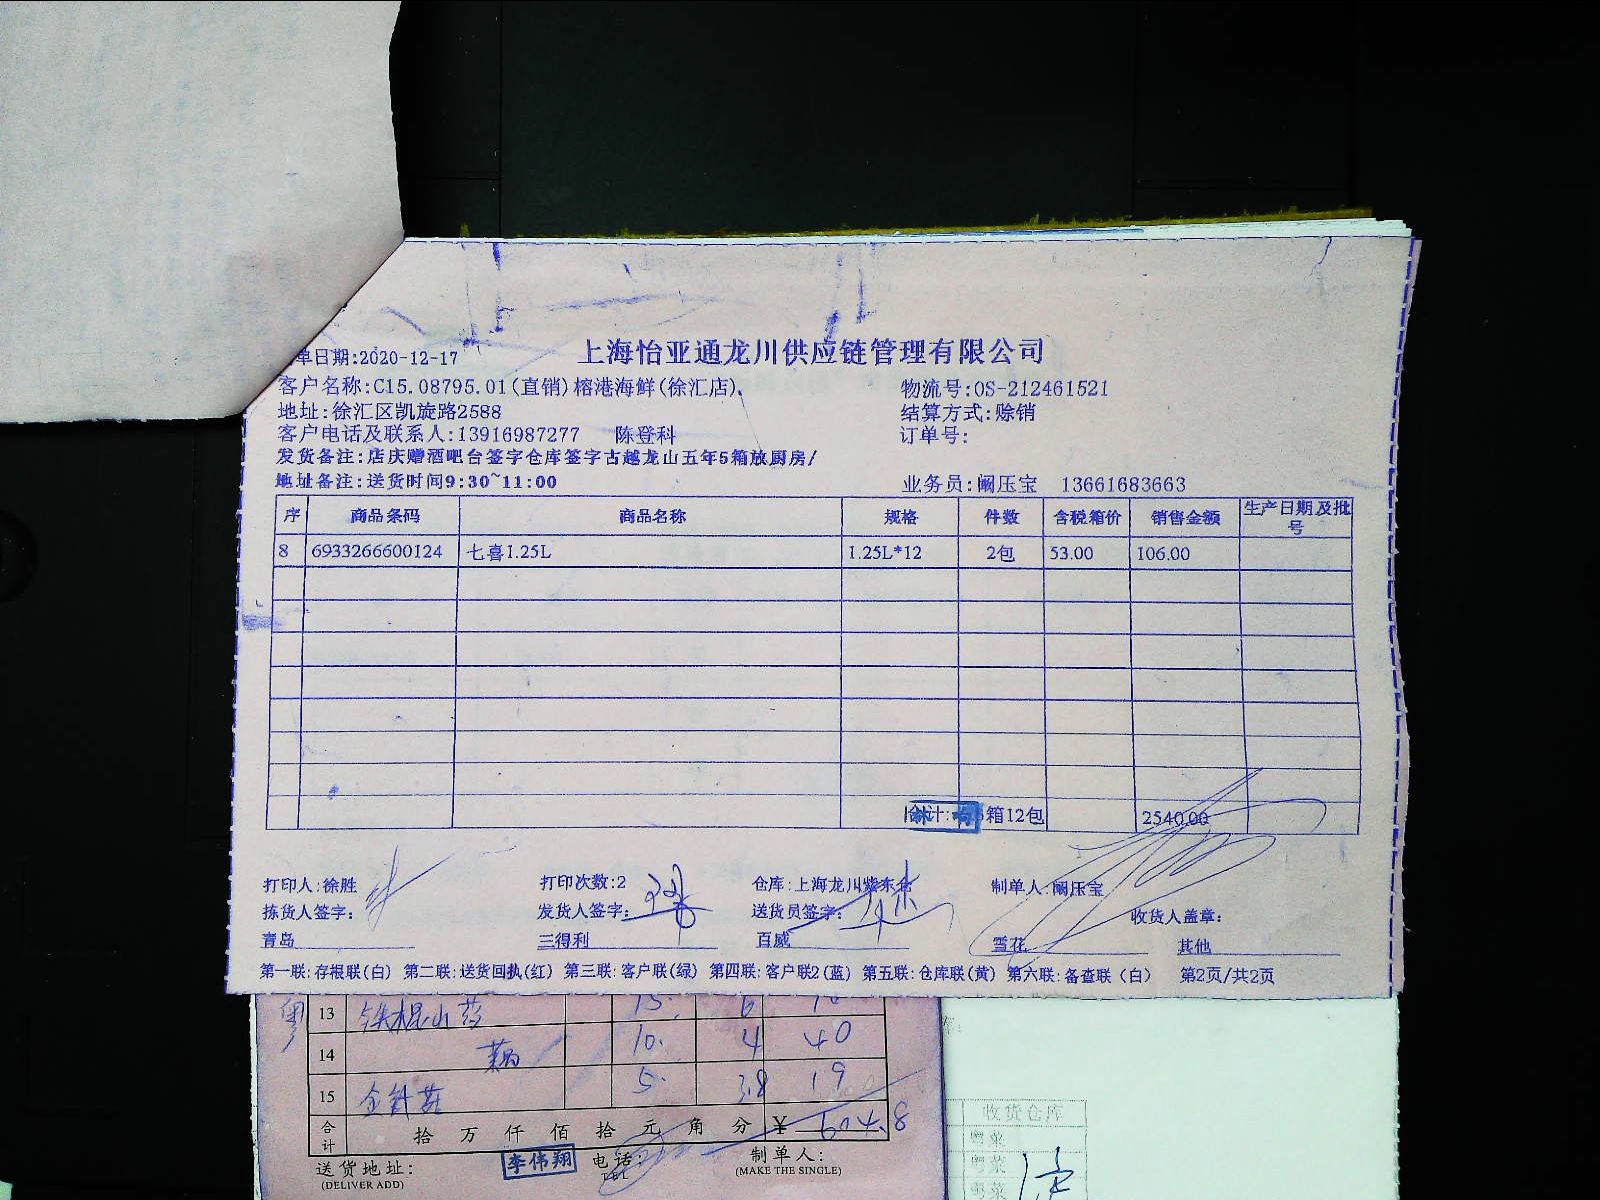 单日期:2020-12-17
上海怡亚通龙川供应链管理有限公司
客户名称:C15.08795.01(直销)榕港海鲜(徐汇店)、 物流号:OS-212461521
地址:徐汇区凯旋路2588 结算方式:赊销
客户电话及联系人:13916987277 陈登科 订单号:
发货备注:店庆赠酒吧台签字仓库签字古越龙山五年5箱放厨房/
地址备注:送货时间9:30~11:00 业务员:阚压宝 13661683663
序 商品条码 商品名称 规格 件数 含税箱价 销售金额 生产日期及批号
8 6933266600124 七喜1.25L 1.25L*12 2包 53.00 106.00
合计: 箱12包 2540.00
打印人:徐胜 打印次数:2 仓库:上海龙川紫东仓 制单人:阚压宝
拣货人签字: 发货人签字: 送货员签字: 收货人盖章:
青岛 三得利 百威 雪花 其他
第一联:存根联(白) 第二联:送货回执(红) 第三联:客户联(绿) 第四联:客户联2(蓝) 第五联:仓库联(黄) 第六联:备查联(白) 第2页/共2页
粤 13 铁棍山药 15. 6
14 藕 10. 4 40
15 金针菇 5. 3.8 19
合计 拾 万 仟 佰 拾 元 角 分 ¥ 604.8
送货地址: 李伟翔 电话: 制单人:
(DELIVER ADD) TEL (MAKE THE SINGLE)
收货仓库
粤菜
粤菜
粤菜